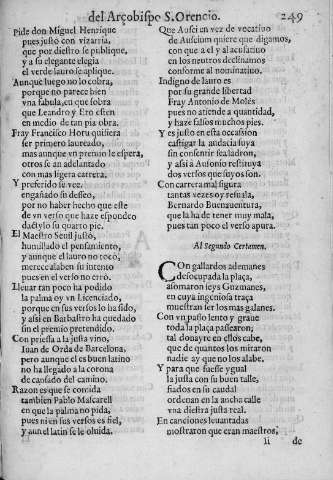 del Arçobispo S. Orencio. 249
Pide don Miguel Henrique
pues justò con vizarria,
que por diestro se publique,
y a su elegante elegia
el verde lauro se aplique.
Aunque luego no lo cobra,
porque no parece bien
vna fabula, en que sobra
que Leandro y Ero esten
en medio de tan pia obra.
Fray Francisco Hortu quisiera
ser primero laureado,
mas aunque vn premio le espera,
otros se an adelantado
con mas ligera carrera.
Y preferido se vee,
engañado su desseo,
por no haber hecho que este
de vn verso que haze espondeo
dactylo su quarto pie.
El Maestro Senil justò,
humillado el pensamiento,
y aunque el lauro no tocò,
merece alaben su intento
pues en el verso no errò.
Lleuar tan poco ha podido
la palma oy vn Licenciado,
porque en sus versos lo ha sido,
y assi en Barbastro ha quedado
sin el premio pretendido.
Con priessa a la justa vino,
Iuan de Orda de Barcelona,
pero aunque el es buen latino
no ha llegado a la corona
de cansado del camino.
Razon es que se combida
tambien Pablo Mascarell
en que la palma no pida,
pues ni en sus versos es fiel,
y aun el latin se le oluida.
Que Ausci en vez de vocatiuo
de Auscium quiere que digamos,
con que a el y al acusatiuo
en los neutros declinamos
conforme al nominatiuo.
Indigno de lauro es
por su grande libertad
Fray Antonio de Moles
pues no atiende a quantidad,
y haze falsos muchos pies.
Y es justo en esta occassion
castigar la audacia suya
sin consentir sea ladron,
y assi a Ausonio restituya
dos versos que suyos son.
Con carrera mal sigura
tantas vezes oy resuala,
Bernardo Buenauentura,
que la ha de tener muy mala,
pues tan poco el verso apura.
Al Segundo Certamen.
COn gallardos ademanes
desocupada la plaça,
asomaron seys Guzmanes,
en cuya ingeniosa traça
muestran ser los mas galanes.
Con vn passo lento y graue
toda la plaça passearon;
tal donayre en ellos cabe,
que de quantos los miraron
nadie ay que no los alabe.
Y para que fuesse ygual
la justa con su buen talle,
fiados en su caudal
ordenan en la ancha calle
vna diestra justa real.
En canciones leuantadas
mostraron que eran maestros,
Ii de